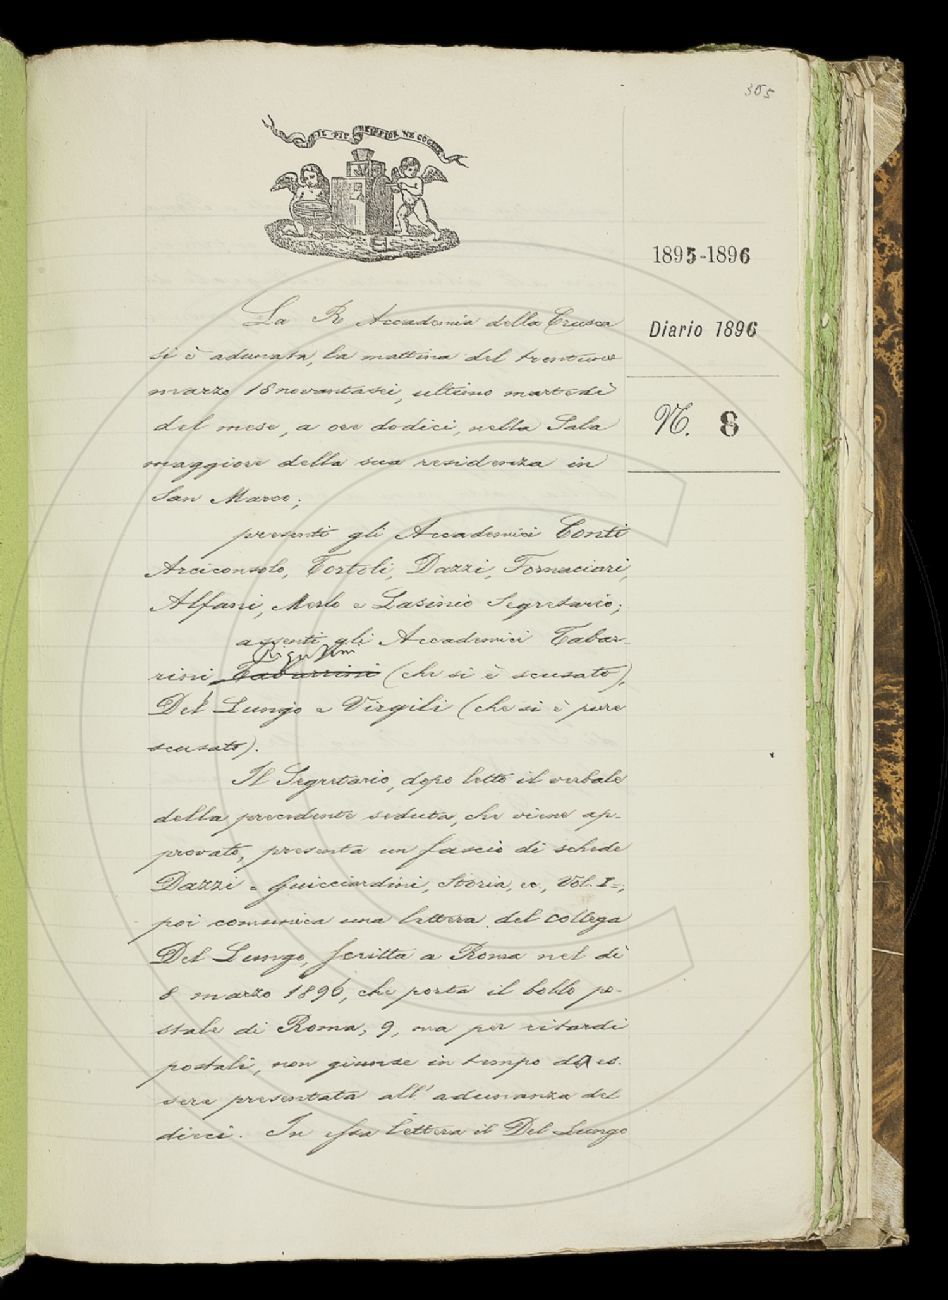 305
IL PIÙ BEL FIOR NE COGLIE
1895-1896
Diario 1896
N. 8
La R Accademia della Crusca
si è adunata, la mattina del trentuno
marzo 18novantasei, ultimo martedì
del mese, a ore dodici, nella Sala
maggiore della sua residenza in
San Marco;
presenti gli Accademici Conti
Arciconsolo, Tortoli, Dazzi, Fornaciari,
Alfani, Merlo e Lasinio Segretario;
assenti gli Accademici Tabar-
Rigutini
rini Tabarrini (che si è scusato),
Del Lungo e Virgili (che si è pure
scusato).
Il Segretario, dopo letto il verbale
della precedente seduta, che viene ap-
provato, presenta un fascio di schede
Dazzi e Guicciardini, Storia, ec, Vol. I=;
poi comunica una lettera del collega
Del Lungo, scritta a Roma nel dì
8 marzo 1896, che porta il bollo po-
stale di Roma, 9, ma per ritardi
postali, non giunse in tempo da es-
sere presentata all'adunanza del
dieci. In essa lettera il Del Lungo